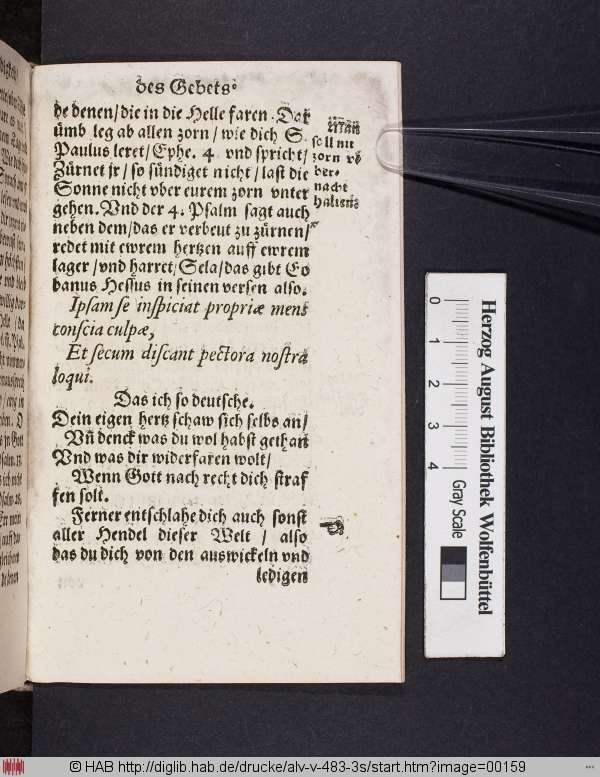 des Gebets.
de denen/die in die Helle faren. Dar
umb leg ab allen zorn/wie dich S.
Paulus leret/Ephe. 4 vnd spricht/
Zürnet jr/so sündiget nicht/last die
Sonne nicht vber eurem zorn vnter
gehen. Vnd der 4. Psalm sagt auch
neben dem/das er verbeut zu zürnen/
redet mit ewrem hertzen auff ewrem
lager/vnd harret, Sela/das gibt Eo
banus Hessus in seinen versen also.
Ipsam se inspiciat propriæ mens
conscia culpæ,
Et secum discant pectora nostra
loqui.
Das ich so deutsche.
Dein eigen hertz schaw sich selbs an/
Vñ denck was du wol habst gethan
Vnd was dir widerfaren wolt/
Wenn Gott nach recht dich straf
fen solt.
Ferner entschlahe dich auch sonst
aller Hendel dieser Welt/also
das du dich von den auswickeln vnd
ledigen
Man
soll nit
zorn
vber-
nacht
halten
0 1 2 3 4
Gray Scale
Herzog August Bibliothek Wolfenbüttel
© HAB http://diglib.hab.de/drucke/alv-v-483-3s/start.htm?image=00159